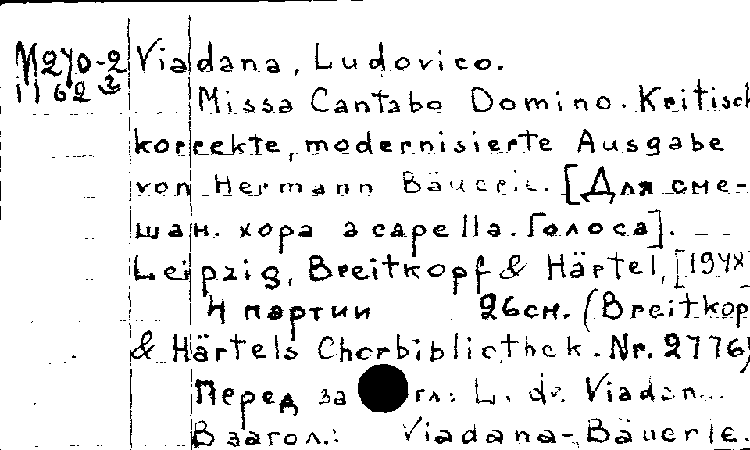 М270-2 Viadana, Ludovico.
1162
Missa Cantabo Domino. Kritisch
korrekte, modernisierte Ausgabe
von Hermann Bäuerle. [Для сме-
шан. хора a capella. Голоса].
Leipzig, Breitkopf & Härtel, [194X]
4 партии 26см. (Breitkop
& Härtels Chorbibliothek. Nr. 2776)
Перед загл: L. de Viadan...
В загол.: Viadana-Bäuerle.